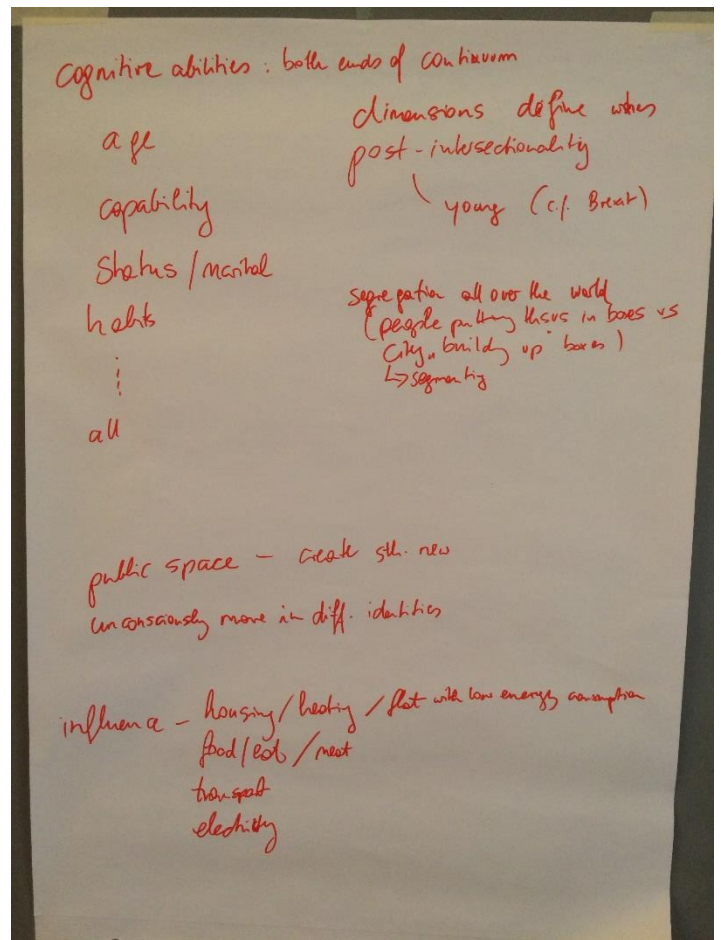 cognitive abilities : both ends of continuum
age
capability
Status / marital
habits
all
dimensions define
post-intersectionality
young (c.f. Brexit)
segregation all over the world
(people putting in boxes vs
city „building up" boxes)
↳ segmenting
public space – create sth. new
unconsciously move in diff. identities
influence – housing / heating / flat with low energy consumption
food / eat / meat
transport
electricity